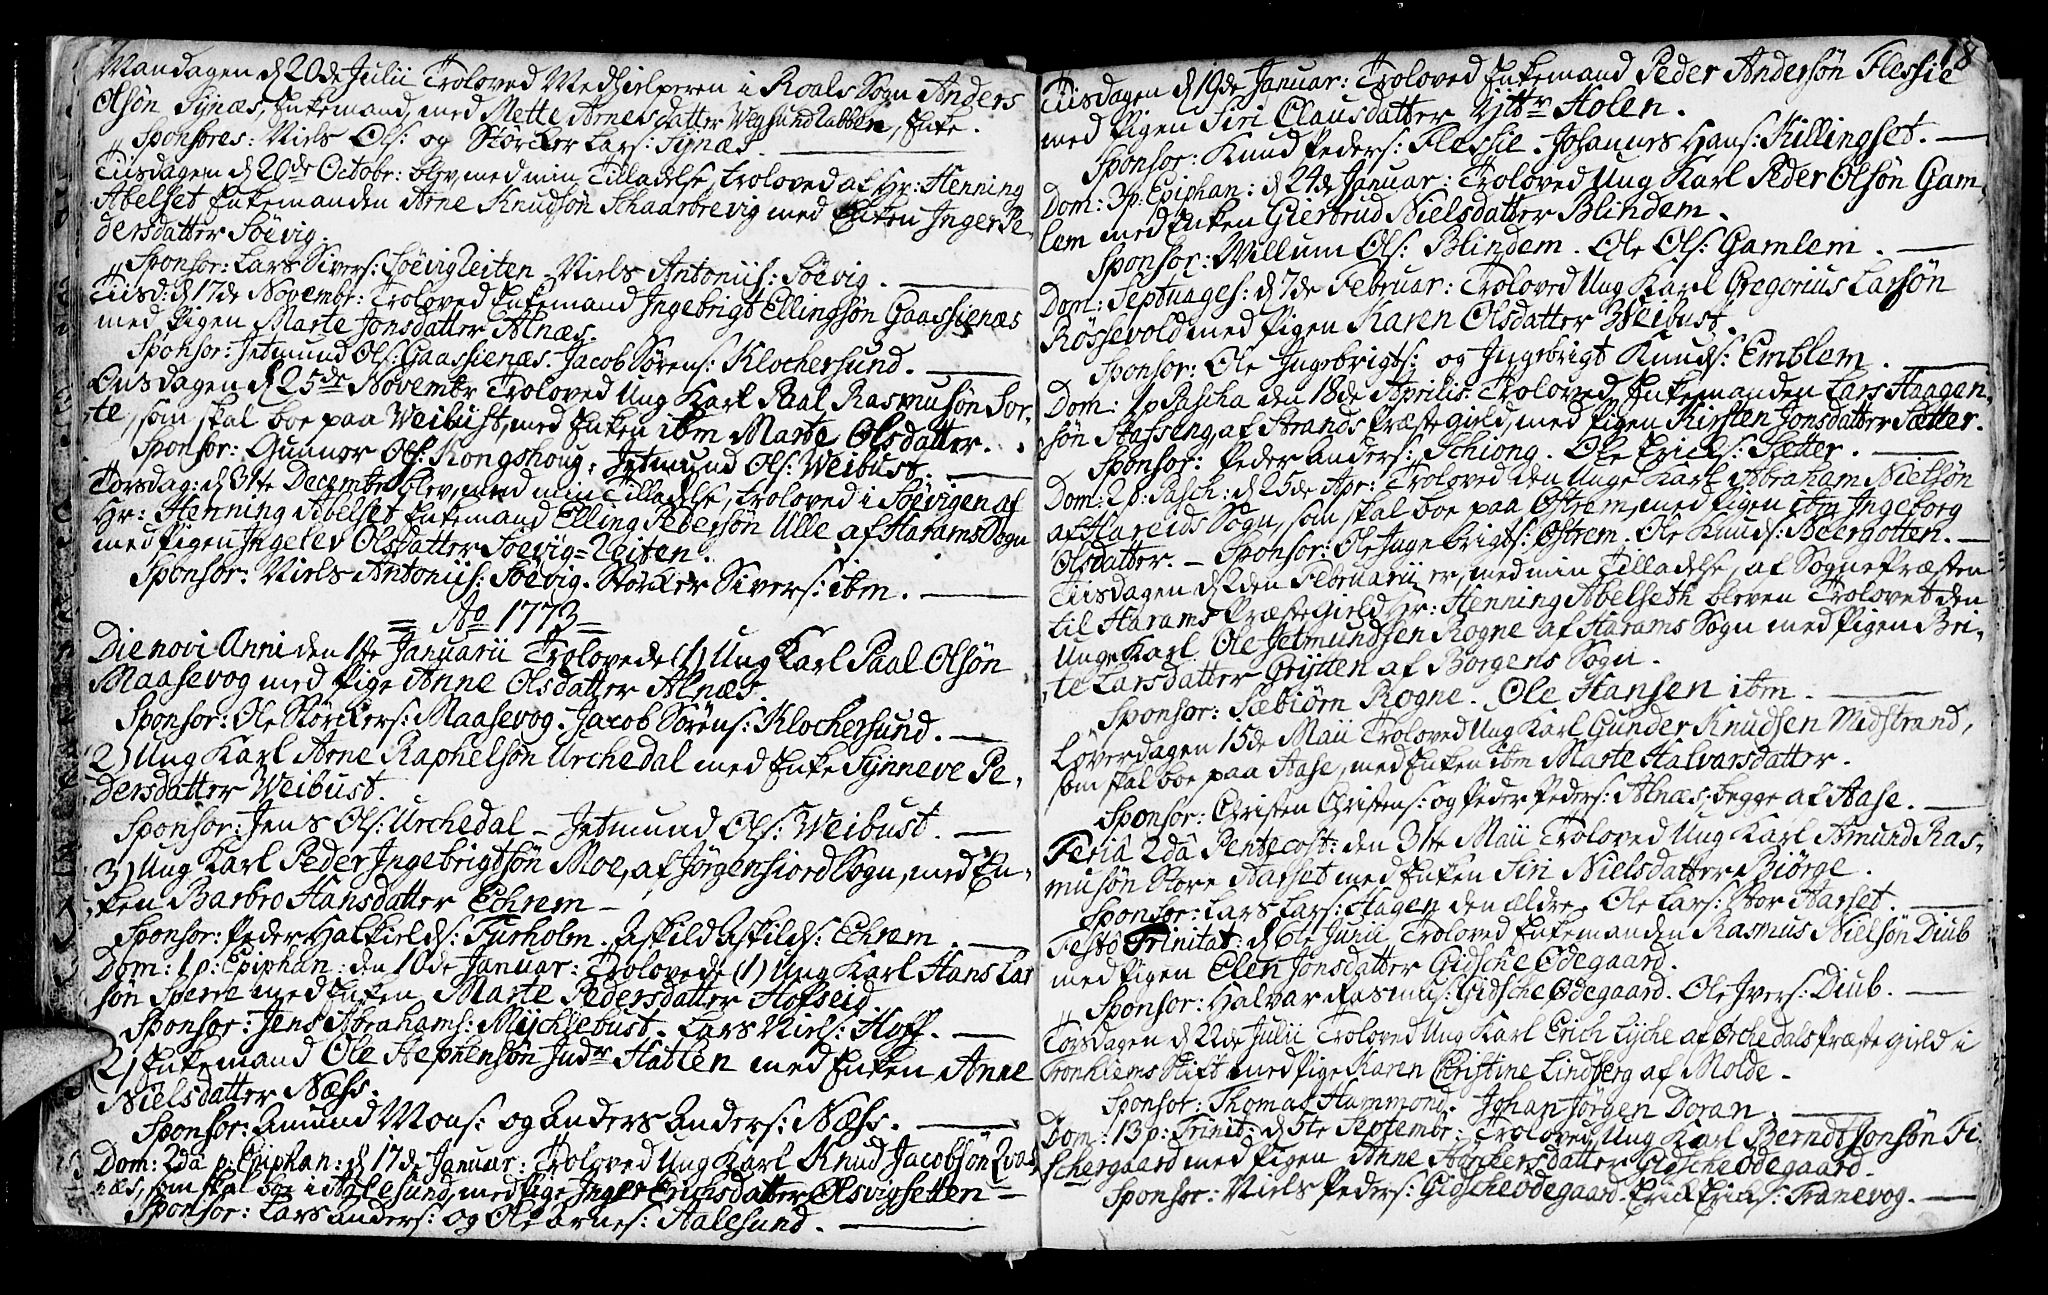 Mandagen d 20de Julii Troloved Medhielperen i Roals Sogn Anders
Olsön Synæs, Enkemand, med Mette Arnesdatter Wegsundlabben, Enke.
Sponsores: Niels Ols: og Störcker Lars: Synæs.
Tiisdagen d 20de Octobr: blev, med min Tilladelse, troloved af Hr: Henning
Abelset Enkemanden Arne Knudsön Skaarbrevig med Enken Inger Pe-
dersdatter Söevig.
Sponsor: Lars Sivers: Söevigleiten - Niels Antonii: Söevig.
Tiisd: d 17de Novembr: Troloved Enkemand Ingebrigt Ellingsön Gaassienæs
med Pigen Marte Jonsdatter Alnæs.
Sponsor: Jetmund Ols: Gaassienæs. Jacob Sörens: Klochersund.
Onsdagen d 25de Novembr Troloved Ung Karl Paal Rasmusön Sor-
te, som skal boe paa Weibust, med Enken ibm Marte Olsdatter.
Sponsor: Gunnor Ols: Kongshoug, Jetmund Ols: Weibust.
Torsdag: d 31te Decembr blev, med min Tilladelse, troloved i Söevigen af
Hr: Henning Abelset Enkemand Elling Pedersön Ulle af Harams Sogn
med Pigen Ingelev Olsdatter Soevig=Leiten.
Sponsor: Niels Antonii: Söevig. Störcker Sivers: ibm.
= Ao 1773 =
Die novi Anni den 1te Januarii Trolovede (1) Ung Karl Paal Olsön
Maasevog med Pige Anne Olsdatter Alnæs.
Sponsor: Ole Störckers: Maasevog. Jacob Sörens: Klochersund.
2) Ung Karl Arne Raphelsön Urchedal med Enke Synneve Pe-
dersdatter Weibust.
Sponsor: Jens Ols: Urchedal - Jetmund Ols: Weibust.
3) Ung Karl Peder Ingebrigtsön Moe, af Jörgenfiord Sogn, med En-
ken Barbro Hansdatter Echrem -
Sponsor: Peder Halkields: Furholm. Askild Askilds: Echrem.
Dom: 1 p: Epiphan: den 10de Januar: Trolovede (1) Ung Karl Hans Lar
sön Sperre med Enken Marte Pedersdatter Hofseid
Sponsor: Jens Abrahams: Mychlebust. Lars Niels: Hoff.
2) Enkemand Ole Stephensön Indr Hatlen med Enken Anne
Nielsdatter Næss.
Sponsor: Amund Mons: og Anders Anders: Næss.
Dom: 2da p: Epiphan: d 17de Januar: Troloved Ung Karl Knud Jacobsön Qvas
næs, som skal boe i Aalesund, med Pige Inger Erichsdatter Olsvigsetten -
Sponsor: Lars Anders: og Ole Arnes: Aalesund.
18
Tiisdagen d 19de Januar: Troloved Enkemand Peder Andersön Flessie
med Pigen Siri Clausdatter Yttr Holen.
Sponsor: Knud Peders: Flessie. Johannes Hans: Killingset.
Dom: 3 p: Epiphan: d 24de Januar: Troloved Ung Karl Peder Olsön Gam-
lem med Enken Giertrud Nielsdatter Blindem.
Sponsor: Willum Ols: Blindem. Ole Ols: Gamlem.
Dom: Septuages: d 7de Februar: Troloved Ung Karl Gregorius Larsön
Rössevold med Pigen Karen Olsdatter Weibust.
Sponsor: Ole Ingebrigts: og Ingebrigt Knuds: Emblem.
Dom: 1 p Pascha den 18de Aprilis: Troloved Enkemanden Lars Haagen-
sön Stafseng, af Strands Præstegield, med Pigen Kirsten Jonsdatter Sætter.
Sponsor: Peder Anders: Schiong. Ole Erichs: Sætter.
Dom: 2 p: Pasch: d 25de Apr: Troloved den Unge Karl Abraham Nielsön
af Hareids Sogn, som skal boe paa Östrem, med Pigen ibm Ingeborg
Olsdatter. - Sponsor: Ole Ingebrigts: Östrem. Ole Knuds: Beergotten.
Tiisdagen d 2den Februarii er, med min Tilladelse, af Sognepræsten
til Harams Præstegield Hr: Henning Abelseth bleven Trolovet den
Unge Karl Ole Jetmundsen Rogne af Harams Sogn med Pigen Bri-
te Larsdatter Grytten af Borgens Sogn.
Sponsor: Sæbiörn Rogne. Ole Hansen ibm.
Löverdagen 15de Maii Troloved Ung Karl Gunder Knudsen Midstrand,
som skal boe paa Aase, med Enken ibm Marte Halvarsdatter.
Sponsor: Christen Christens: og Peder Peders: Alnæs, begge af Aase.
Feria 2da Pentecost: den 31te Maii Troloved Ung Karl Amund Ras-
musön Store Aarset med Enken Siri Nielsdatter Biörge.
Sponsor: Lars Lars: Hagen den ældre. Ole Lars: Stor Aarset.
Festo Trinitat: d 6te Junii Troloved Enkemanden Rasmus Nielsön Diub
med Pigen Elen Jonsdatter Gidsche Ödegaard.
Sponsor: Halvar Rasmus: Gidsche Ödegaard. Ole Ivers: Diub.
Torsdagen d 22de Julii Troloved Ung Karl Erich Lyche af Orchedals Præstegield i
Tronhiems Stift med Pige Karen Christine Lindberg af Molde.
Sponsor: Thomas Hammond. Johan Jörgen Doran.
Dom: 13 p: Trinit: d 5te Septembr: Troloved Ung Karl Berndt Jonsön Fi-
schergaard med Pigen Anne Störckersdatter Gidscheödegaard.
Sponsor: Niels Peders: Gidscheödegaard. Erick Ericks: Tranevog.